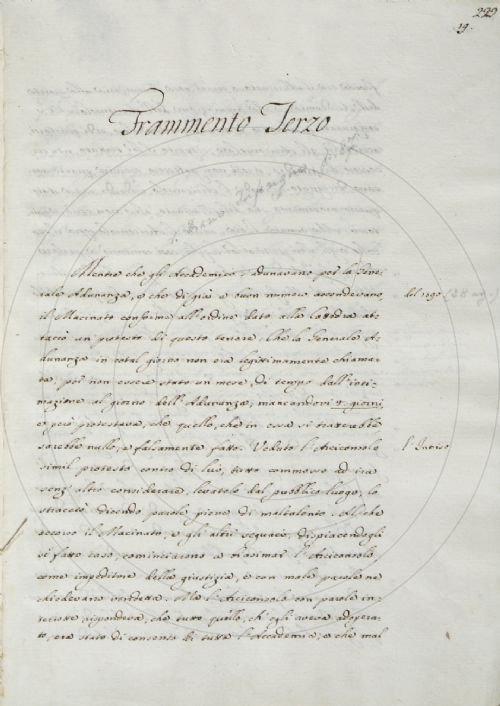 229
19.
Frammento Terzo
Mentre che gli Accademici s'adunavano per la Gene-
rale Adunanza, e che di già a buon numero ascendevano,
il Macinato conforme all'ordine dato alla Cattedra at-
taccò un protesto di questo tenore. Che la Generale A-
dunanza in cotal giorno non era legittimamente chiama-
ta, per non essere stato un mese di tempo dall'inti-
mazione al giorno dell'Adunanza, mancandovi 9. giorni,
e perciò protestava, che quello, che in essa si tratterebbe
sarebbe nullo, e falsamente fatto. Veduto l'Arciconsolo
simil protesto contro di lui, tutto commosso ad ira
senz'altro considerare, levatolo dal pubblico luogo, lo
stracciò dicendo parole piene di maltalento. Al che
accorso il Macinato, e gli altri seguaci, dispiacendogli
sì fatto caso, cominciarono a biasimar l'Arciconsolo,
come impeditore della giustizia, e con male parole ne
chiedevano vendetta. Ma l'Arciconsolo con parole in-
terrotte rispondeva, che tutto quello, ch'egli aveva adopera-
to, era stato di consento di tutta l'Accademia; e che mal
del 1690 (28 ag.)
l'Inciso